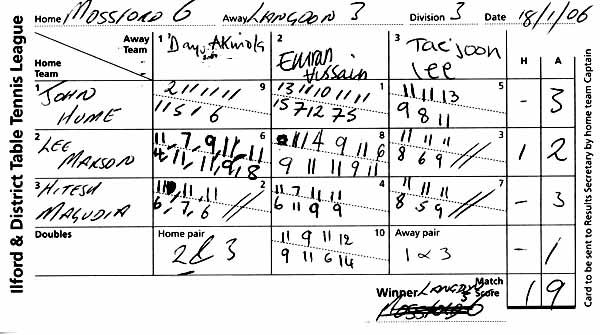 Ilford & District Table Tennis League
Home MOSSFORD 6 Away LANGDON 3 Division 3 Date 18/1/06
Away Team
Home Team
1 Dayo Akinola
2 Emran Hussain
3 Tae joon Lee
H A
1 JOHN HUME
9
11 5 1 6
1
13 11 10 11 11
15 7 12 7 5
5
11 11 13
9 8 11
- 3
2 LEE MARSON
6
11, 7, 9, 11, 11
4, 11, 11, 9, 8
8
11 4 9 11 6
9 11 11 9 11
3
11 11 11
8 6 9
1 2
3 HITESH MAGUDIA
2
11, 11, 11
6, 7, 6
4
11 7 11 11
6 11 9 9
7
11 11 11
8 5 9
- 3
Doubles
Home pair
2 & 3
10
11 9 11 12
9 11 6 14
Away pair
1 & 3
- 1
Winner LANGDON 3
Match Score 1 9
Card to be sent to Results Secretary by home team Captain